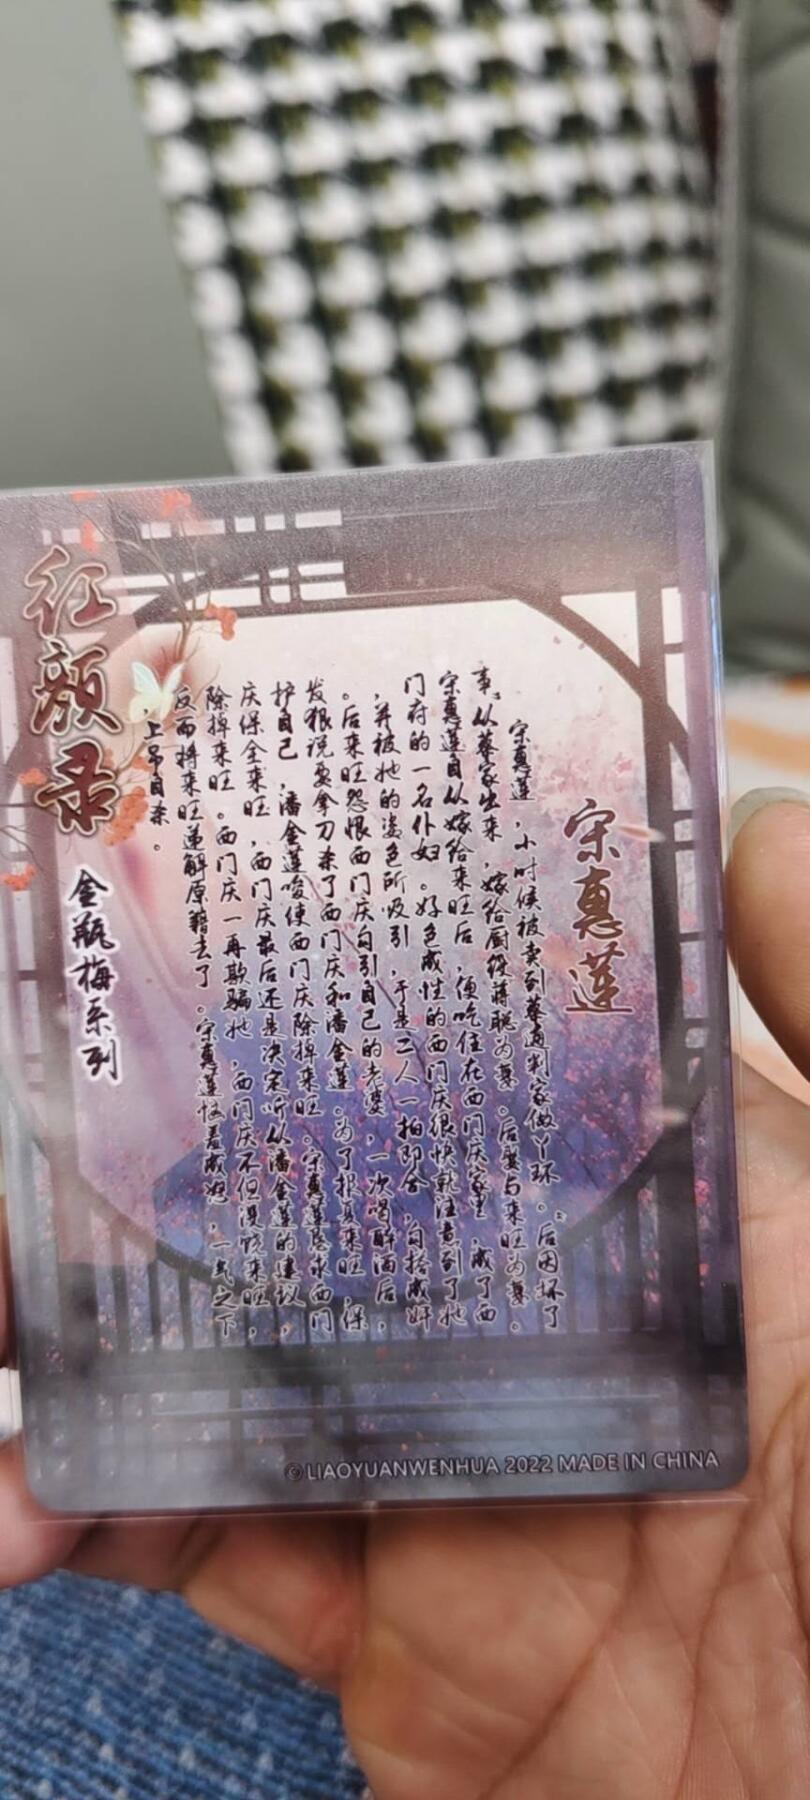 宋惠莲
宋惠莲,小时候被卖到蔡通判家做丫环。后因坏了
事,从蔡家出来,嫁给厨役蒋聪为妻。后娶与来旺为妻。
宋惠莲自从嫁给来旺后,便吃住在西门庆家里,成了西
门府的一名仆妇。好色成性的西门庆很快就注意到了她
,并被她的姿色所吸引,于是二人一拍即合,勾搭成奸
。后来旺怨恨西门庆勾引自己的老婆,一次喝醉酒后,
发狠说要拿刀杀了西门庆和潘金莲。为了报复来旺,保
护自己,潘金莲唆使西门庆除掉来旺。宋惠莲恳求西门
庆保全来旺,西门庆最后还是决定听从潘金莲的建议,
除掉来旺。西门庆一再欺骗她,西门庆不但没饶来旺,
反而将来旺递解原籍去了。宋惠莲恼羞成怒,一气之下
,上吊自杀。
红颜录
金瓶梅系列
©LIAOYUANWENHUA 2022 MADE IN CHINA